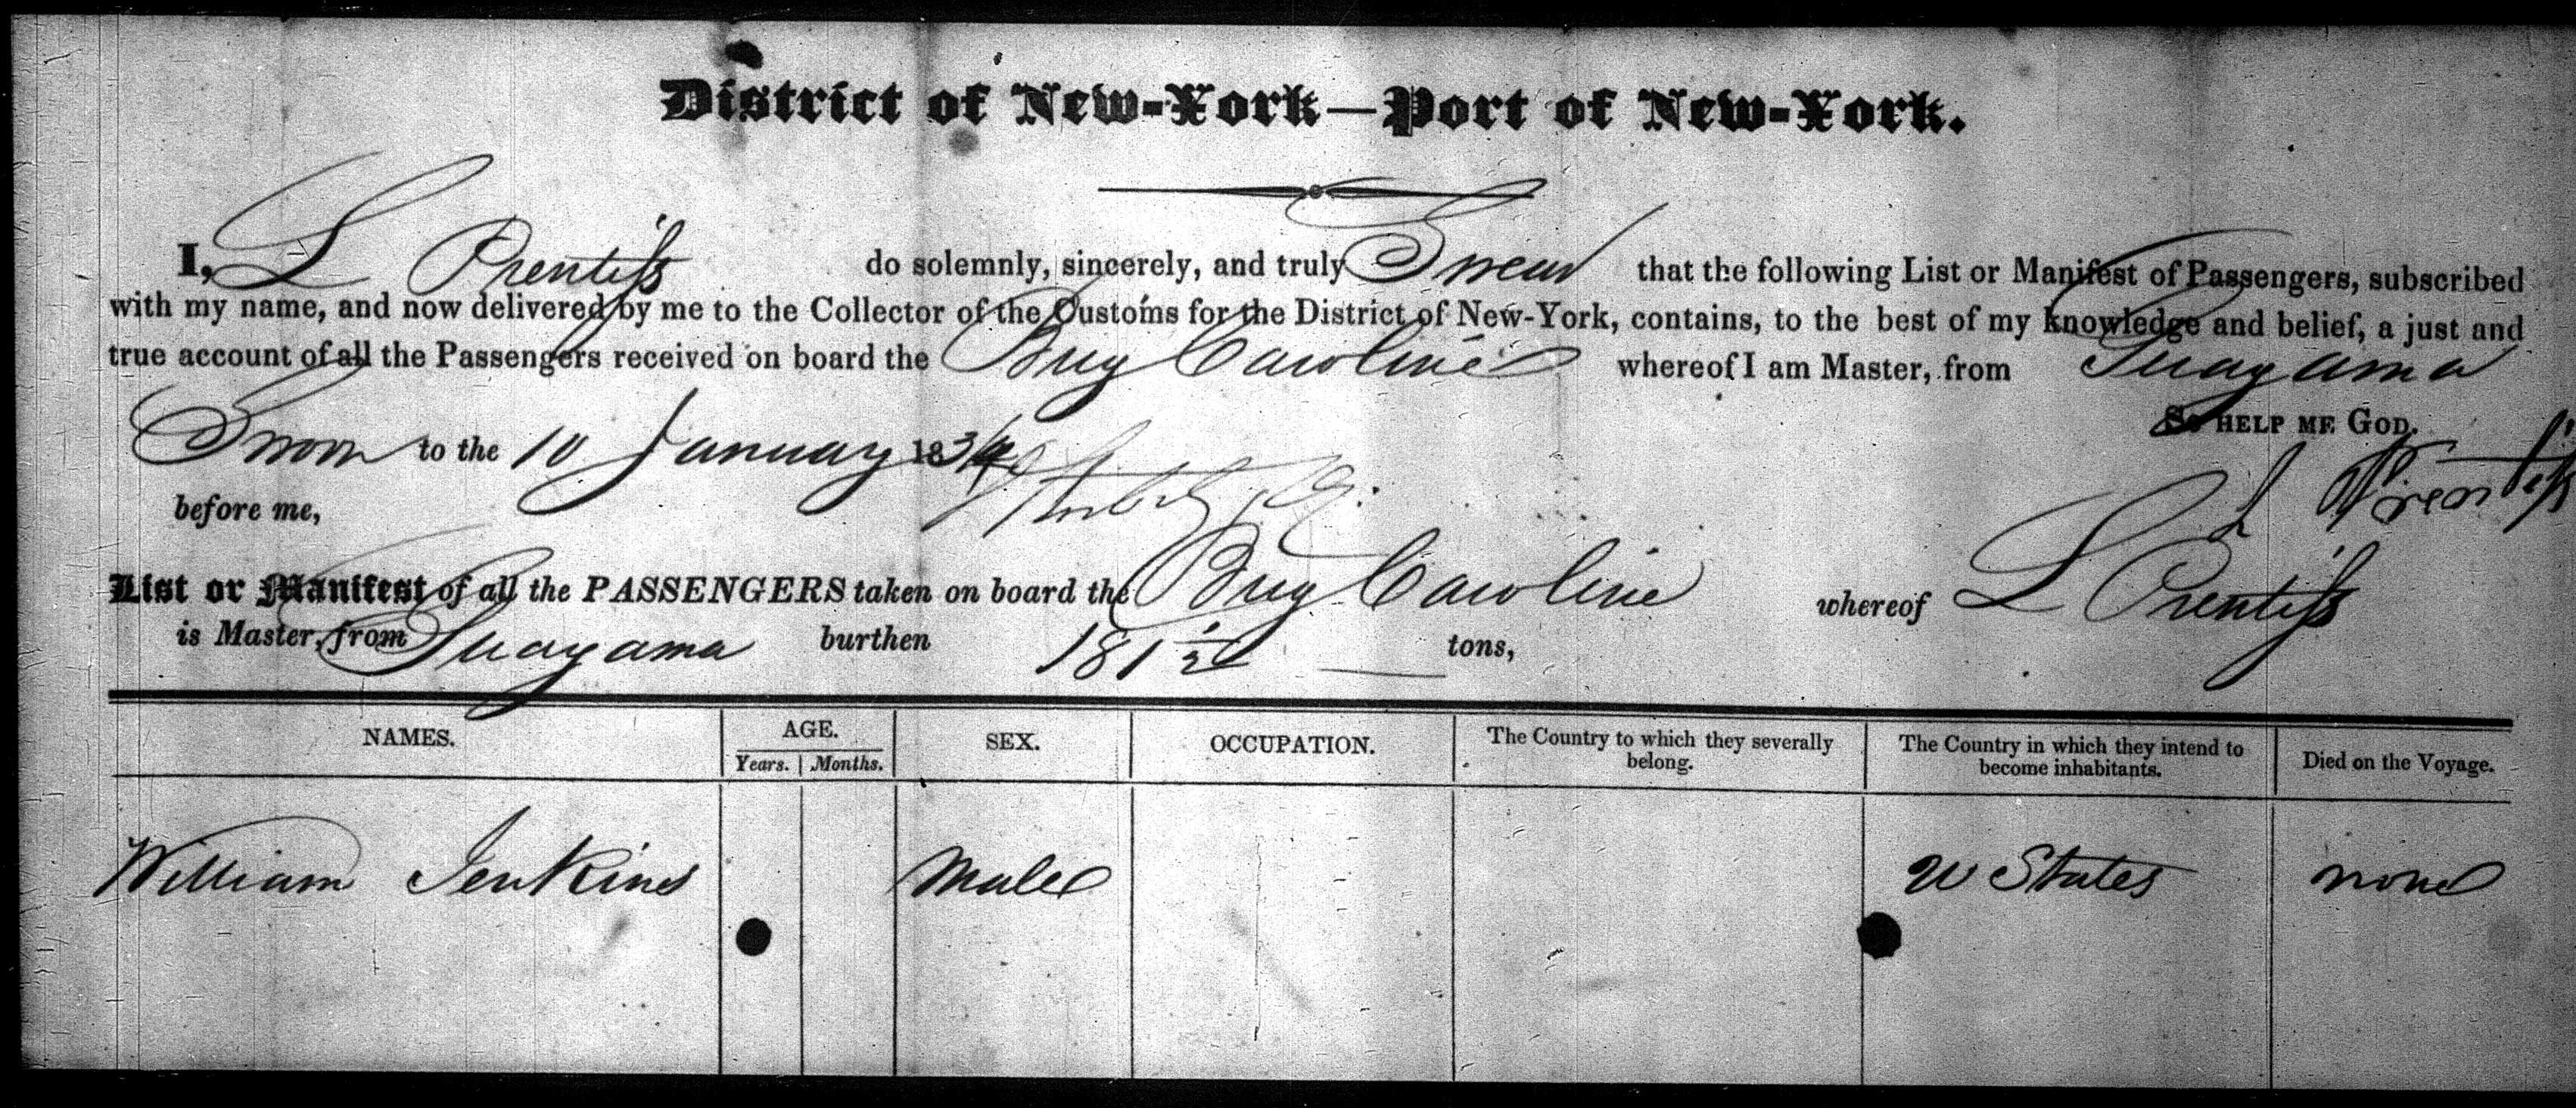 District of New-York—Port of New-York.
I, L Prentiss do solemnly, sincerely, and truly Swear that the following List or Manifest of Passengers, subscribed
with my name, and now delivered by me to the Collector of the Customs for the District of New-York, contains, to the best of my knowledge and belief, a just and
true account of all the Passengers received on board the Brig Caroline whereof I am Master, from Guayama
So help me God.
Sworn to the 10 January 183
L Prentiss
before me,
List or Manifest of all the PASSENGERS taken on board the Brig Caroline whereof L Prentiss
is Master, from Guayama burthen 181 1/2 tons,
NAMES. AGE. Years. Months. SEX. OCCUPATION. The Country to which they severally belong. The Country in which they intend to become inhabitants. Died on the Voyage.
William Jenkins Male U States none